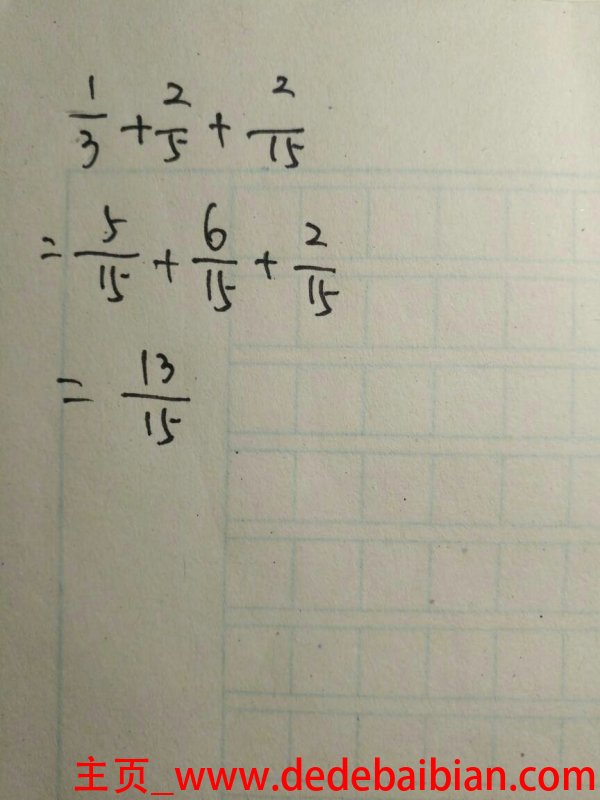 1/3 + 2/5 + 2/15
= 5/15 + 6/15 + 2/15
= 13/15
主页_www.dedebaibian.com